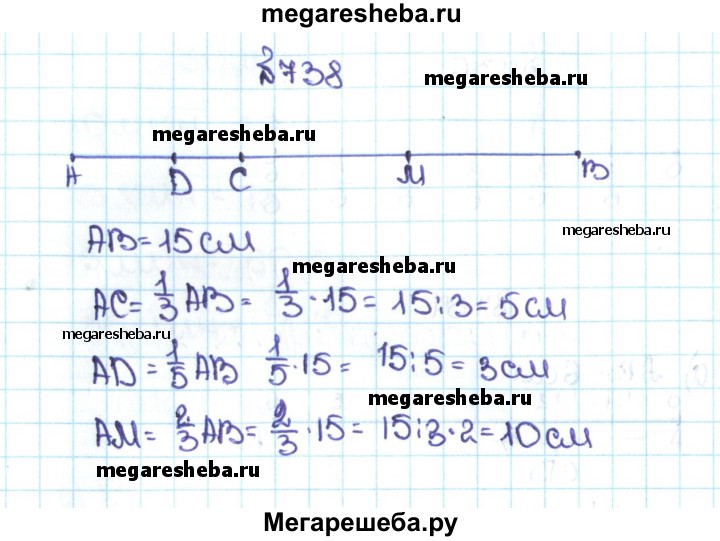 megaresheba.ru
№738
megaresheba.ru
megaresheba.ru
A D C M B
AB = 15 см
megaresheba.ru
megaresheba.ru
AC = 1/3 AB = 1/3 · 15 = 15 : 3 = 5 см
megaresheba.ru
AD = 1/5 AB 1/5 · 15 = 15 : 5 = 3 см
megaresheba.ru
AM = 2/3 AB = 2/3 · 15 = 15 : 3 · 2 = 10 см
megaresheba.ru
Мегарешеба.ру